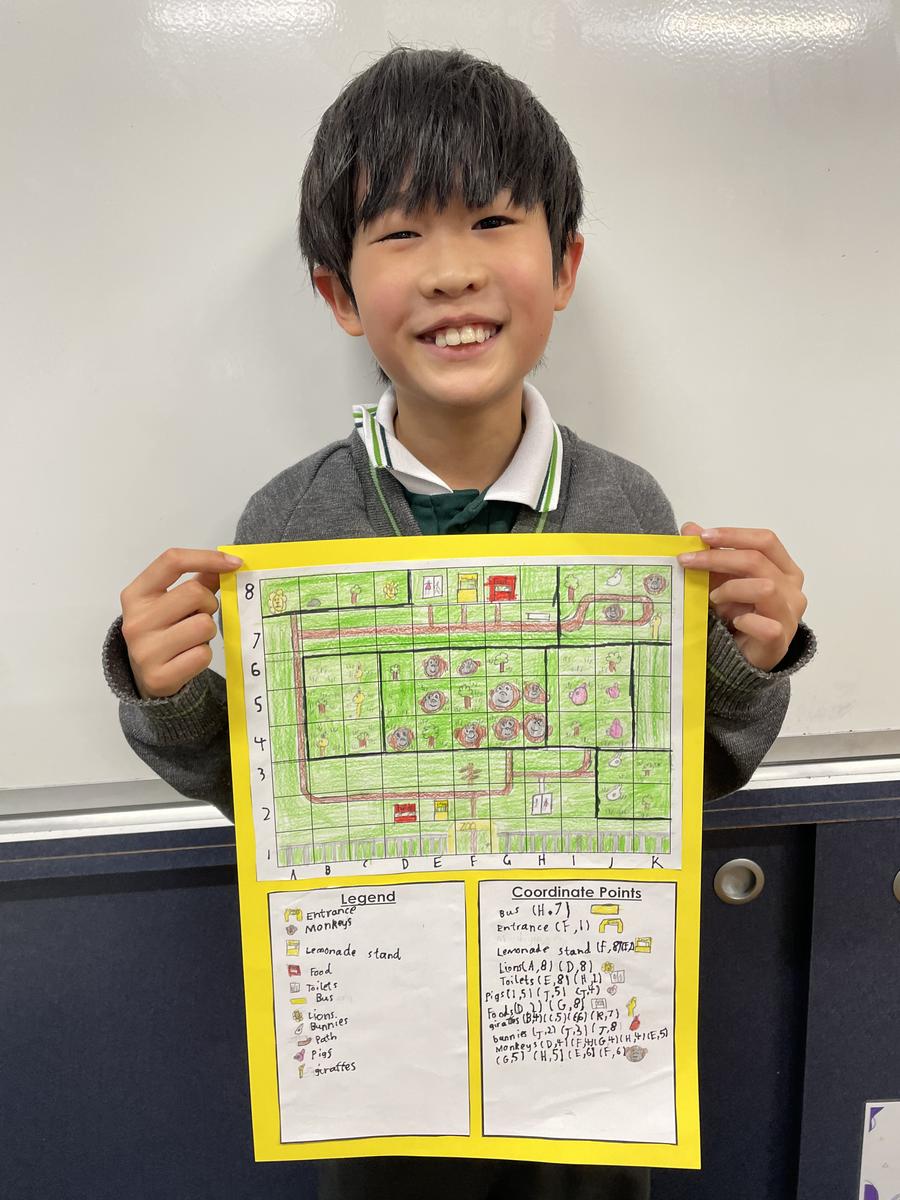 8
7
6
5
4
3
2
1
ZOO
A B C D E F G H I J K
Legend
Entrance
Monkeys
Lemonade stand
Food
Toilets
Bus
Lions
Bunnies
Path
Pigs
giraffes
Coordinate Points
Bus (H,7)
Entrance (F,1)
Lemonade stand (F,8)
Lions (A,8) (D,8)
Toilets (E,8) (H,1)
Pigs (I,5) (J,5) (J,4)
Foods (D,2) (G,8)
giraffes (B,4) (C,5) (K,7)
bunnies (J,2) (J,3) (J,8
Monkeys (D,4) (F,4) (G,4) (H,4) (E,5)
(G,5) (H,5) (E,6) (F,6)